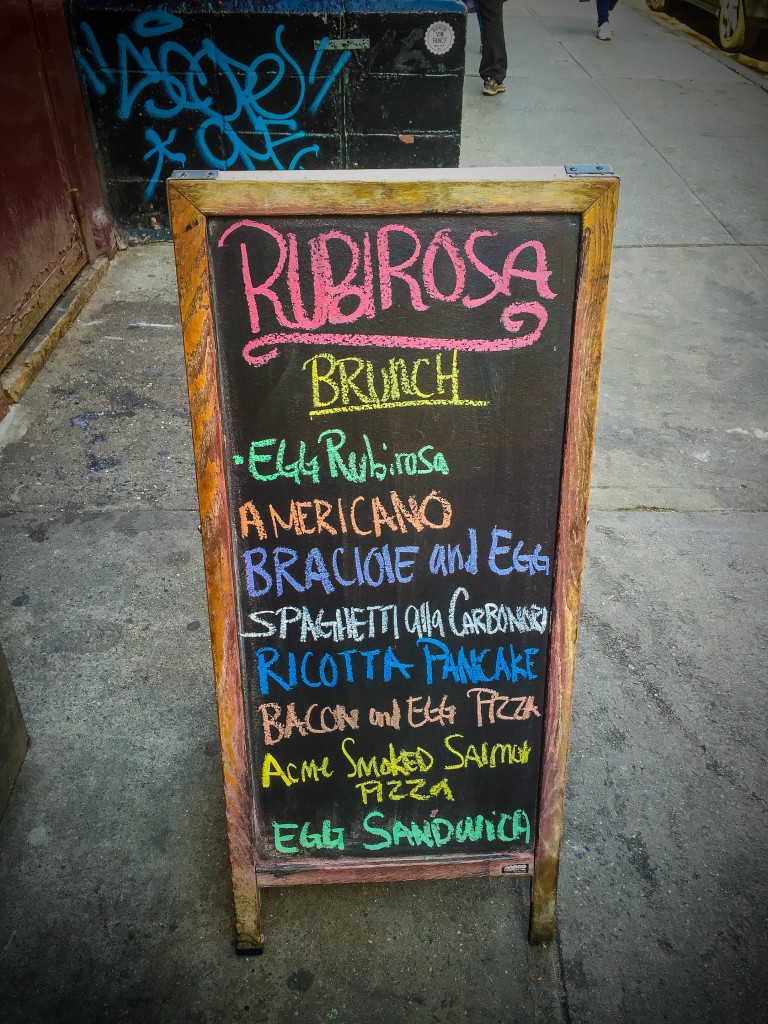 RUBIROSA
BRUNCH
·EGG Rubirosa
AMERICANO
BRACIOLE and EGG
SPAGHETTI alla CARBONARA
RICOTTA PANCAKE
BACON and EGG PIZZA
ACME SMOKED SALMON
PIZZA
EGG SANDWICH